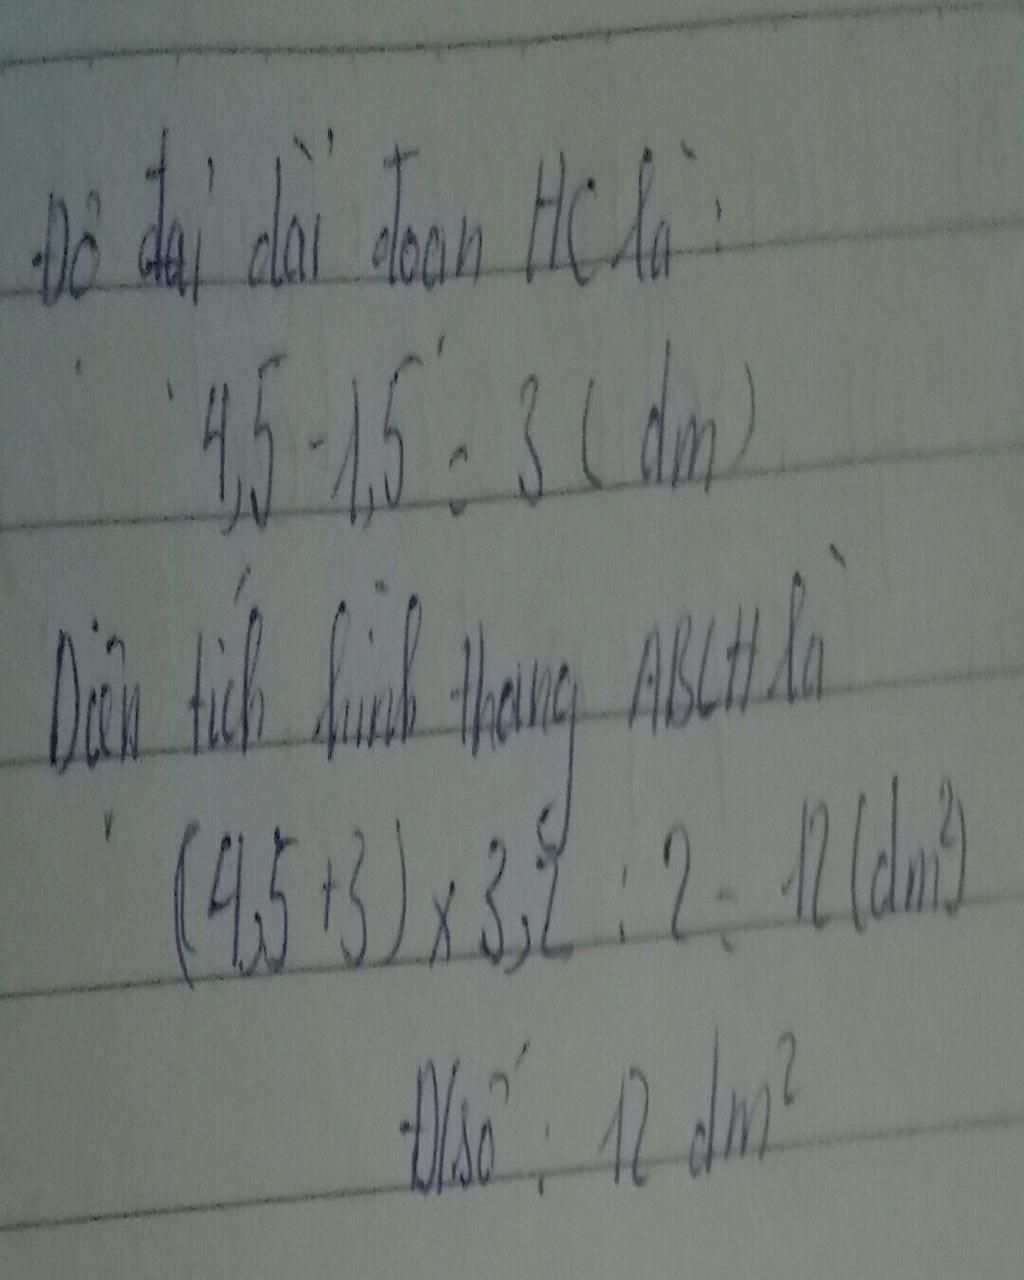 Độ dài dài đoạn HC là :
4,5 - 1,5 = 3 ( dm )
Diện tích hình thang ABCH là
(4,5 + 3) x 3,2 : 2 = 12 (dm²)
Đ/số : 12 dm²